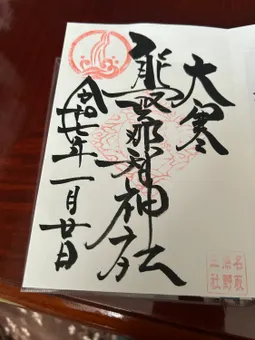 大寒
熊野那智神社
令和七年一月廿日
名取
熊野
三社